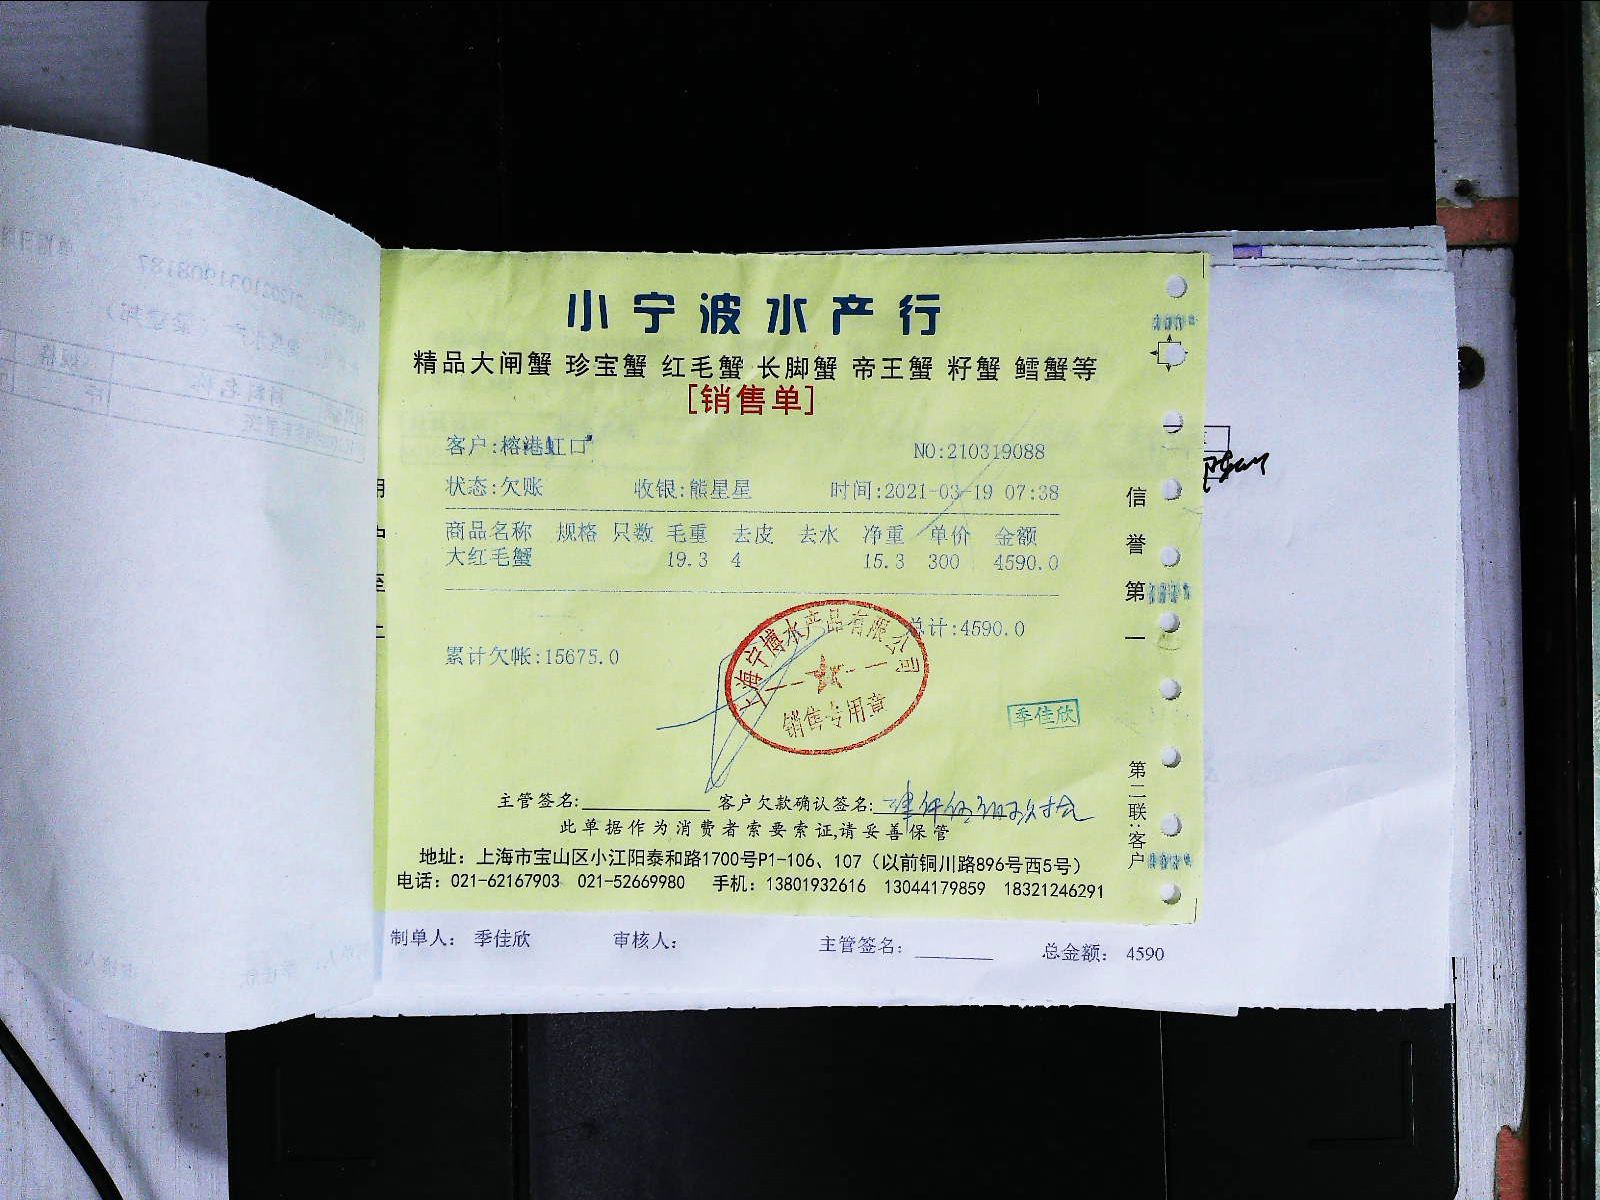 小宁波水产行
精品大闸蟹 珍宝蟹 红毛蟹 长脚蟹 帝王蟹 籽蟹 鳕蟹等
[销售单]
客户:榕港虹口 NO:210319088
状态:欠账 收银:熊星星 时间:2021-03-19 07:38
商品名称 规格 只数 毛重 去皮 去水 净重 单价 金额
大红毛蟹 19.3 4 15.3 300 4590.0
总计:4590.0
累计欠帐:15675.0
上海宁博水产品有限公司
销售专用章
季佳欣
主管签名: 客户欠款确认签名:
此单据作为消费者索要索证,请妥善保管
地址：上海市宝山区小江阳泰和路1700号P1-106、107（以前铜川路896号西5号）
电话：021-62167903 021-52669980 手机：13801932616 13044179859 18321246291
信誉第一
第二联:客户
制单人： 季佳欣 审核人： 主管签名： 总金额： 4590